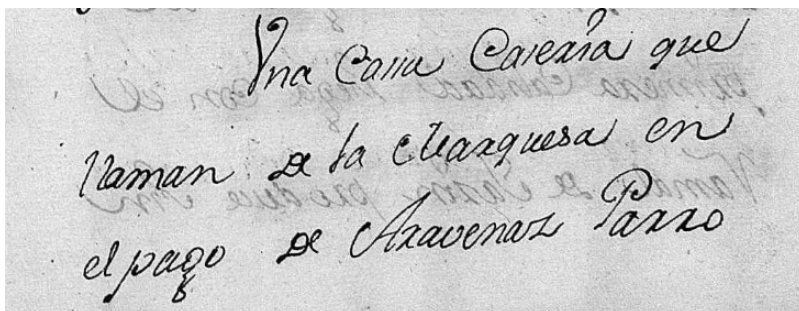 Vna Casa Caseria que
llaman de la Marquesa en
el pago de Aravenaz Parro